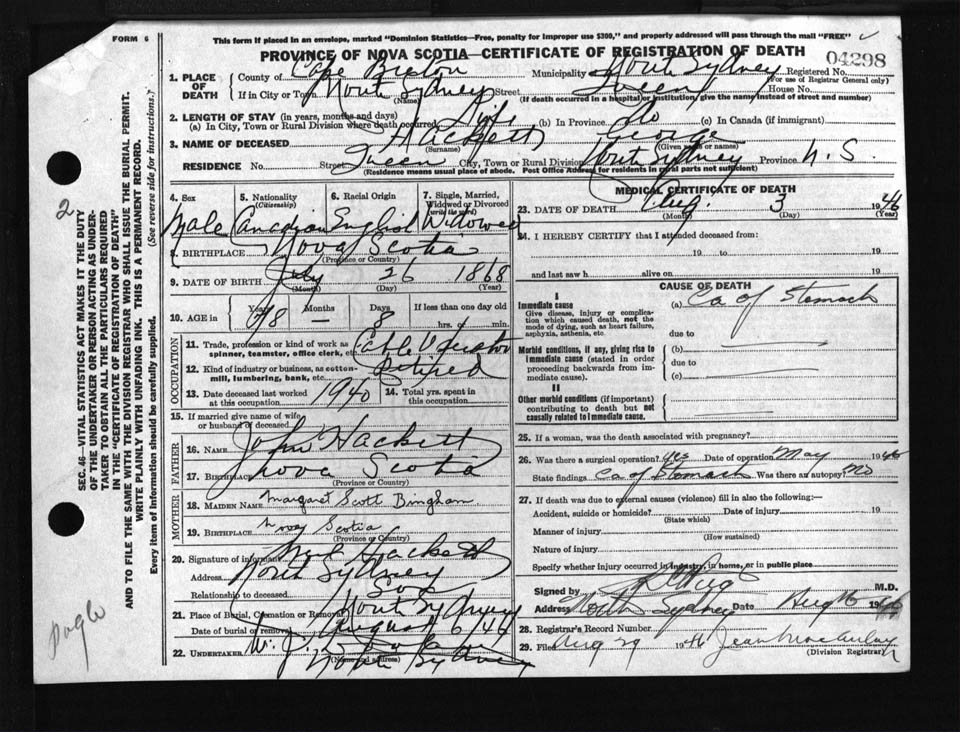 FORM 6
This form if placed in an envelope, marked "Dominion Statistics—Free, penalty for improper use $300," and properly addressed will pass through the mail "FREE"
PROVINCE OF NOVA SCOTIA—CERTIFICATE OF REGISTRATION OF DEATH
04298
1. PLACE OF DEATH
County of Cape Breton Municipality North Sydney Registered No.
(For use of Registrar General only)
If in City or Town North Sydney Street Queen House No.
(Name) (If death occurred in a hospital or institution, give the name instead of street and number)
2. LENGTH OF STAY (in years, months and days)
(a) In City, Town or Rural Division where death occurred Life (b) In Province do (c) In Canada (if immigrant)
3. NAME OF DECEASED Hackett George
(Surname) (Given names or names)
RESIDENCE No. Street Queen City, Town or Rural Division North Sydney Province N.S.
(Residence means usual place of abode. Post Office Address for residents in rural parts not sufficient)
4. Sex Male
5. Nationality (Citizenship) Canadian
6. Racial Origin English
7. Single, Married, Widowed or Divorced (write the word) Widowed
8. BIRTHPLACE Nova Scotia
(Province or Country)
9. DATE OF BIRTH July 26 1868
(Month) (Day) (Year)
10. AGE in Years 78 Months — Days 8 If less than one day old hrs. or min.
OCCUPATION
11. Trade, profession or kind of work as spinner, teamster, office clerk, etc. Cable
12. Kind of industry or business, as cotton-mill, lumbering, bank, etc. Retired
13. Date deceased last worked at this occupation 1940
14. Total yrs. spent in this occupation
15. If married give name of wife or husband of deceased
FATHER
16. NAME John Hackett
17. BIRTHPLACE Nova Scotia
(Province or Country)
MOTHER
18. MAIDEN NAME Margaret Scott Bingham
19. BIRTHPLACE Nova Scotia
(Province or Country)
20. Signature of informant Hackett
Address North Sydney
Relationship to deceased Son
21. Place of Burial, Cremation or Removal North Sydney
Date of burial or removal August 6/46
22. UNDERTAKER W. J.
(Name and address) North Sydney
MEDICAL CERTIFICATE OF DEATH
23. DATE OF DEATH Aug. 3 1946
(Month) (Day) (Year)
24. I HEREBY CERTIFY that I attended deceased from:
19 to 19
and last saw h alive on 19
CAUSE OF DEATH
I
Immediate cause
Give disease, injury or complication which caused death, not the mode of dying, such as heart failure, asphyxia, asthenia, etc.
(a) Ca of Stomach
due to
Morbid conditions, if any, giving rise to immediate cause (stated in order proceeding backwards from immediate cause).
(b)
due to
(c)
II
Other morbid conditions (if important) contributing to death but not causally related to immediate cause.
25. If a woman, was the death associated with pregnancy?
26. Was there a surgical operation? yes Date of operation May 1946
State findings Ca of Stomach Was there an autopsy? No
27. If death was due to external causes (violence) fill in also the following:—
Accident, suicide or homicide? Date of injury 19
(State which)
Manner of injury
(How sustained)
Nature of injury
Specify whether injury occurred in industry, in home, or in public place
Signed by M.D.
Address North Sydney Date Aug 1946
28. Registrar's Record Number
29. Filed Aug 29 1946 Jean MacAulay
(Division Registrar)
SEC. 46—VITAL STATISTICS ACT MAKES IT THE DUTY
OF THE UNDERTAKER OR PERSON ACTING AS UNDERTAKER TO OBTAIN ALL THE PARTICULARS REQUIRED
IN THE "CERTIFICATE OF REGISTRATION OF DEATH"
AND TO FILE THE SAME WITH THE DIVISION REGISTRAR WHO SHALL ISSUE THE BURIAL PERMIT.
WRITE PLAINLY WITH UNFADING INK. THIS IS A PERMANENT RECORD.
Every item of information should be carefully supplied. (See reverse side for instructions.)
2